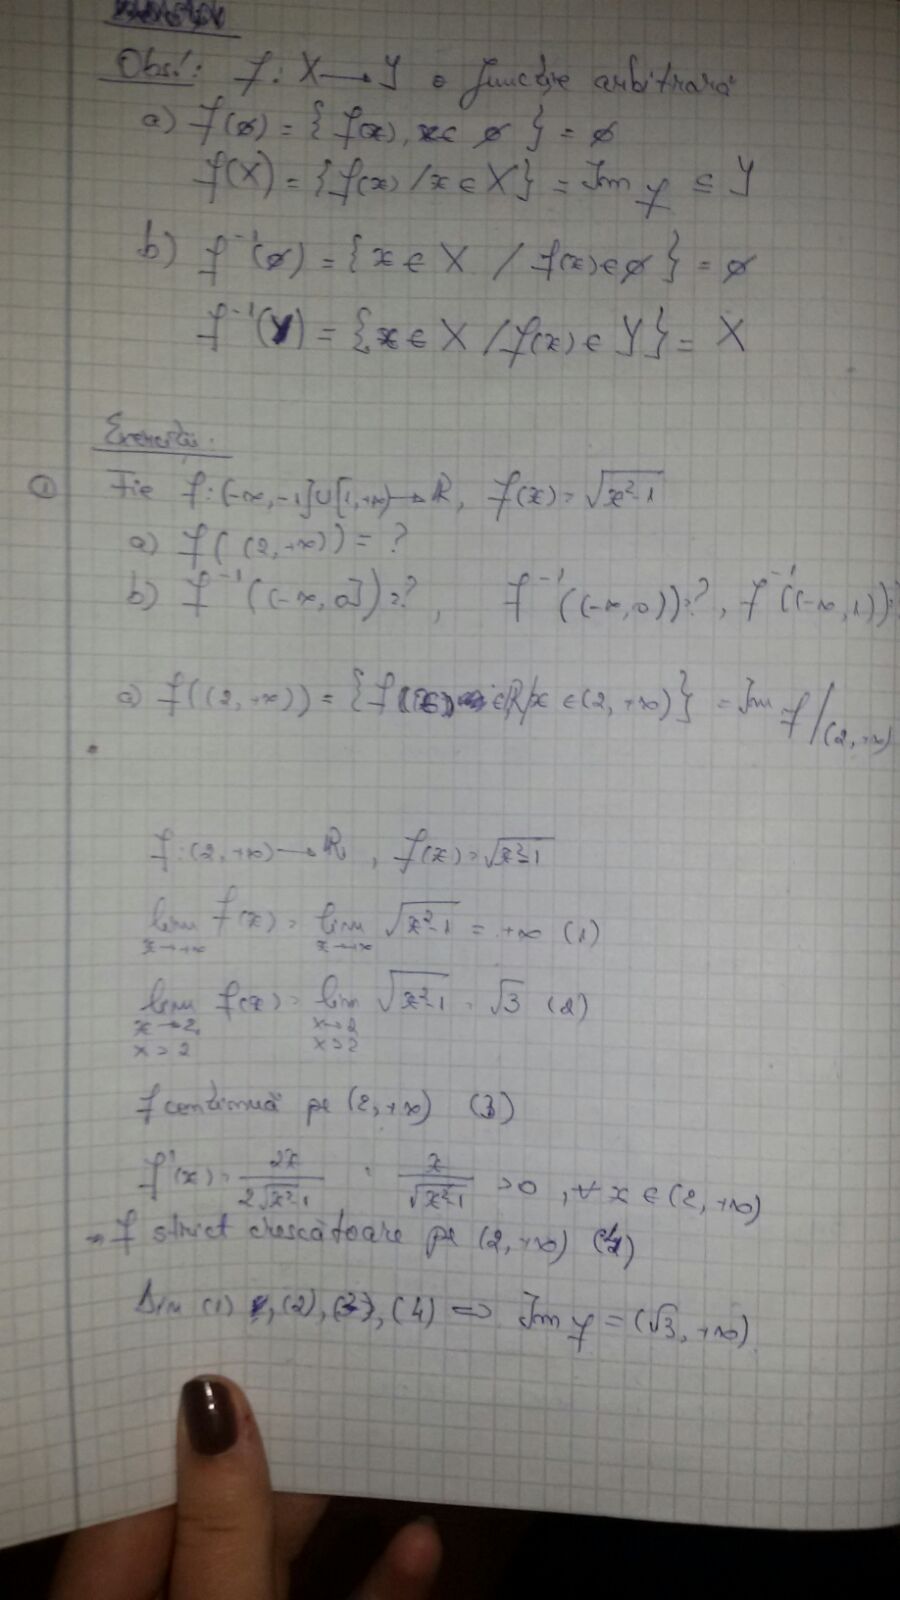 Obs!: f: X → Y o funcţie arbitrară
a) f(ø) = { f(x), x ∈ ø } = ø
f(X) = { f(x) / x ∈ X } = Im f ⊆ Y
b) f⁻¹(ø) = { x ∈ X / f(x) ∈ ø } = ø
f⁻¹(Y) = { x ∈ X / f(x) ∈ Y } = X
Exerciţii:
① Fie f: (-∞, -1] ∪ [1, +∞) → R, f(x) = √(x²-1)
a) f((2, +∞)) = ?
b) f⁻¹((-∞, 0]) = ?, f⁻¹((-∞, 0)) = ?, f⁻¹((-∞, 1)) = ?
a) f((2, +∞)) = { f(x) ∈ R / x ∈ (2, +∞) } = Im f /(2, +∞)
f: (2, +∞) → R, f(x) = √(x²-1)
lim x→+∞ f(x) = lim x→∞ √(x²-1) = +∞ (1)
lim x→2, x>2 f(x) = lim x→2 x>2 √(x²-1) = √3 (2)
f continuă pe (2, +∞) (3)
f'(x) = 2x / 2√(x²-1) = x / √(x²-1) > 0, ∀ x ∈ (2, +∞)
⇒ f strict crescătoare pe (2, +∞) (4)
Din (1), (2), (3), (4) ⇒ Im f = (√3, +∞)